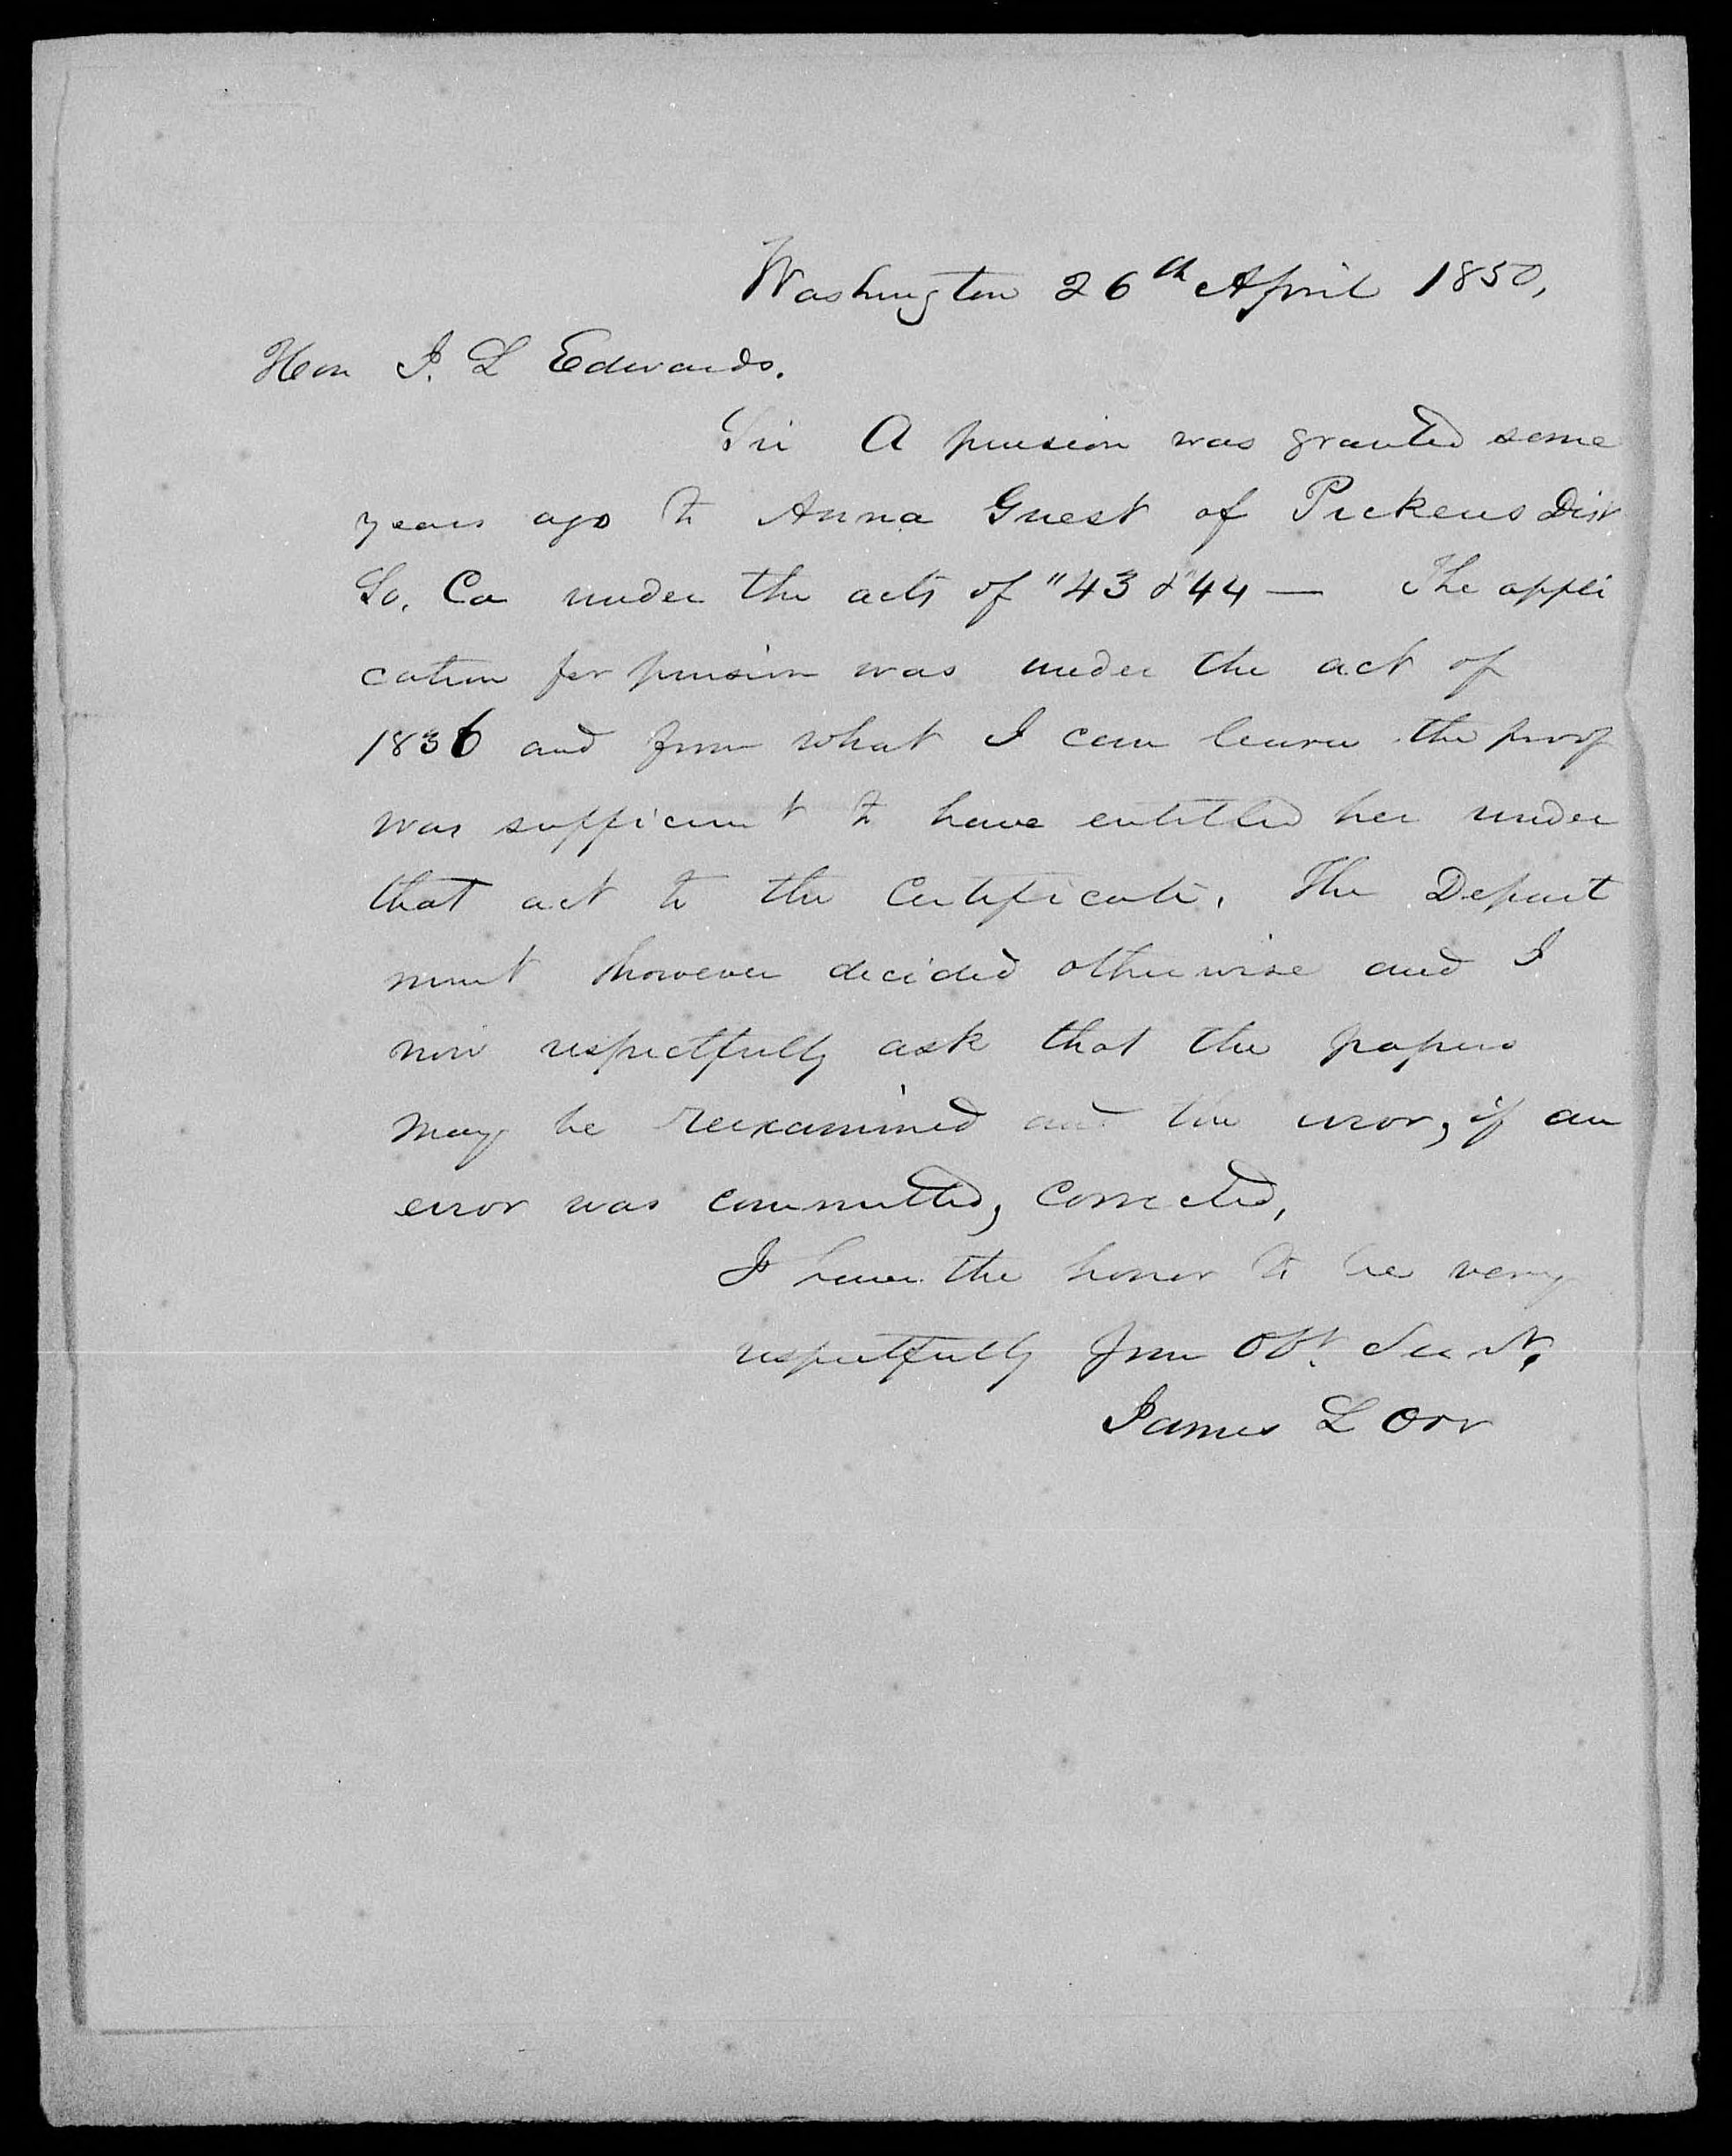 Washington 26th April 1850,
Hon J. L Edwards.
Sir A pension was granted some
years ago to Anna Guest of Pickens Dist
So. Ca under the acts of "43 & "44 — The appli
cation for pension was under the act of
1836 and from what I can learn the proof
was sufficient to have entitled her under
that act to the Certificate. The Depart
ment however decided otherwise and I
now respectfully ask that the papers
may be reexamined and the error, if an
error was committed, corrected,
I have the honor to be very
respectfully Your Obt. Servt.
James L Orr